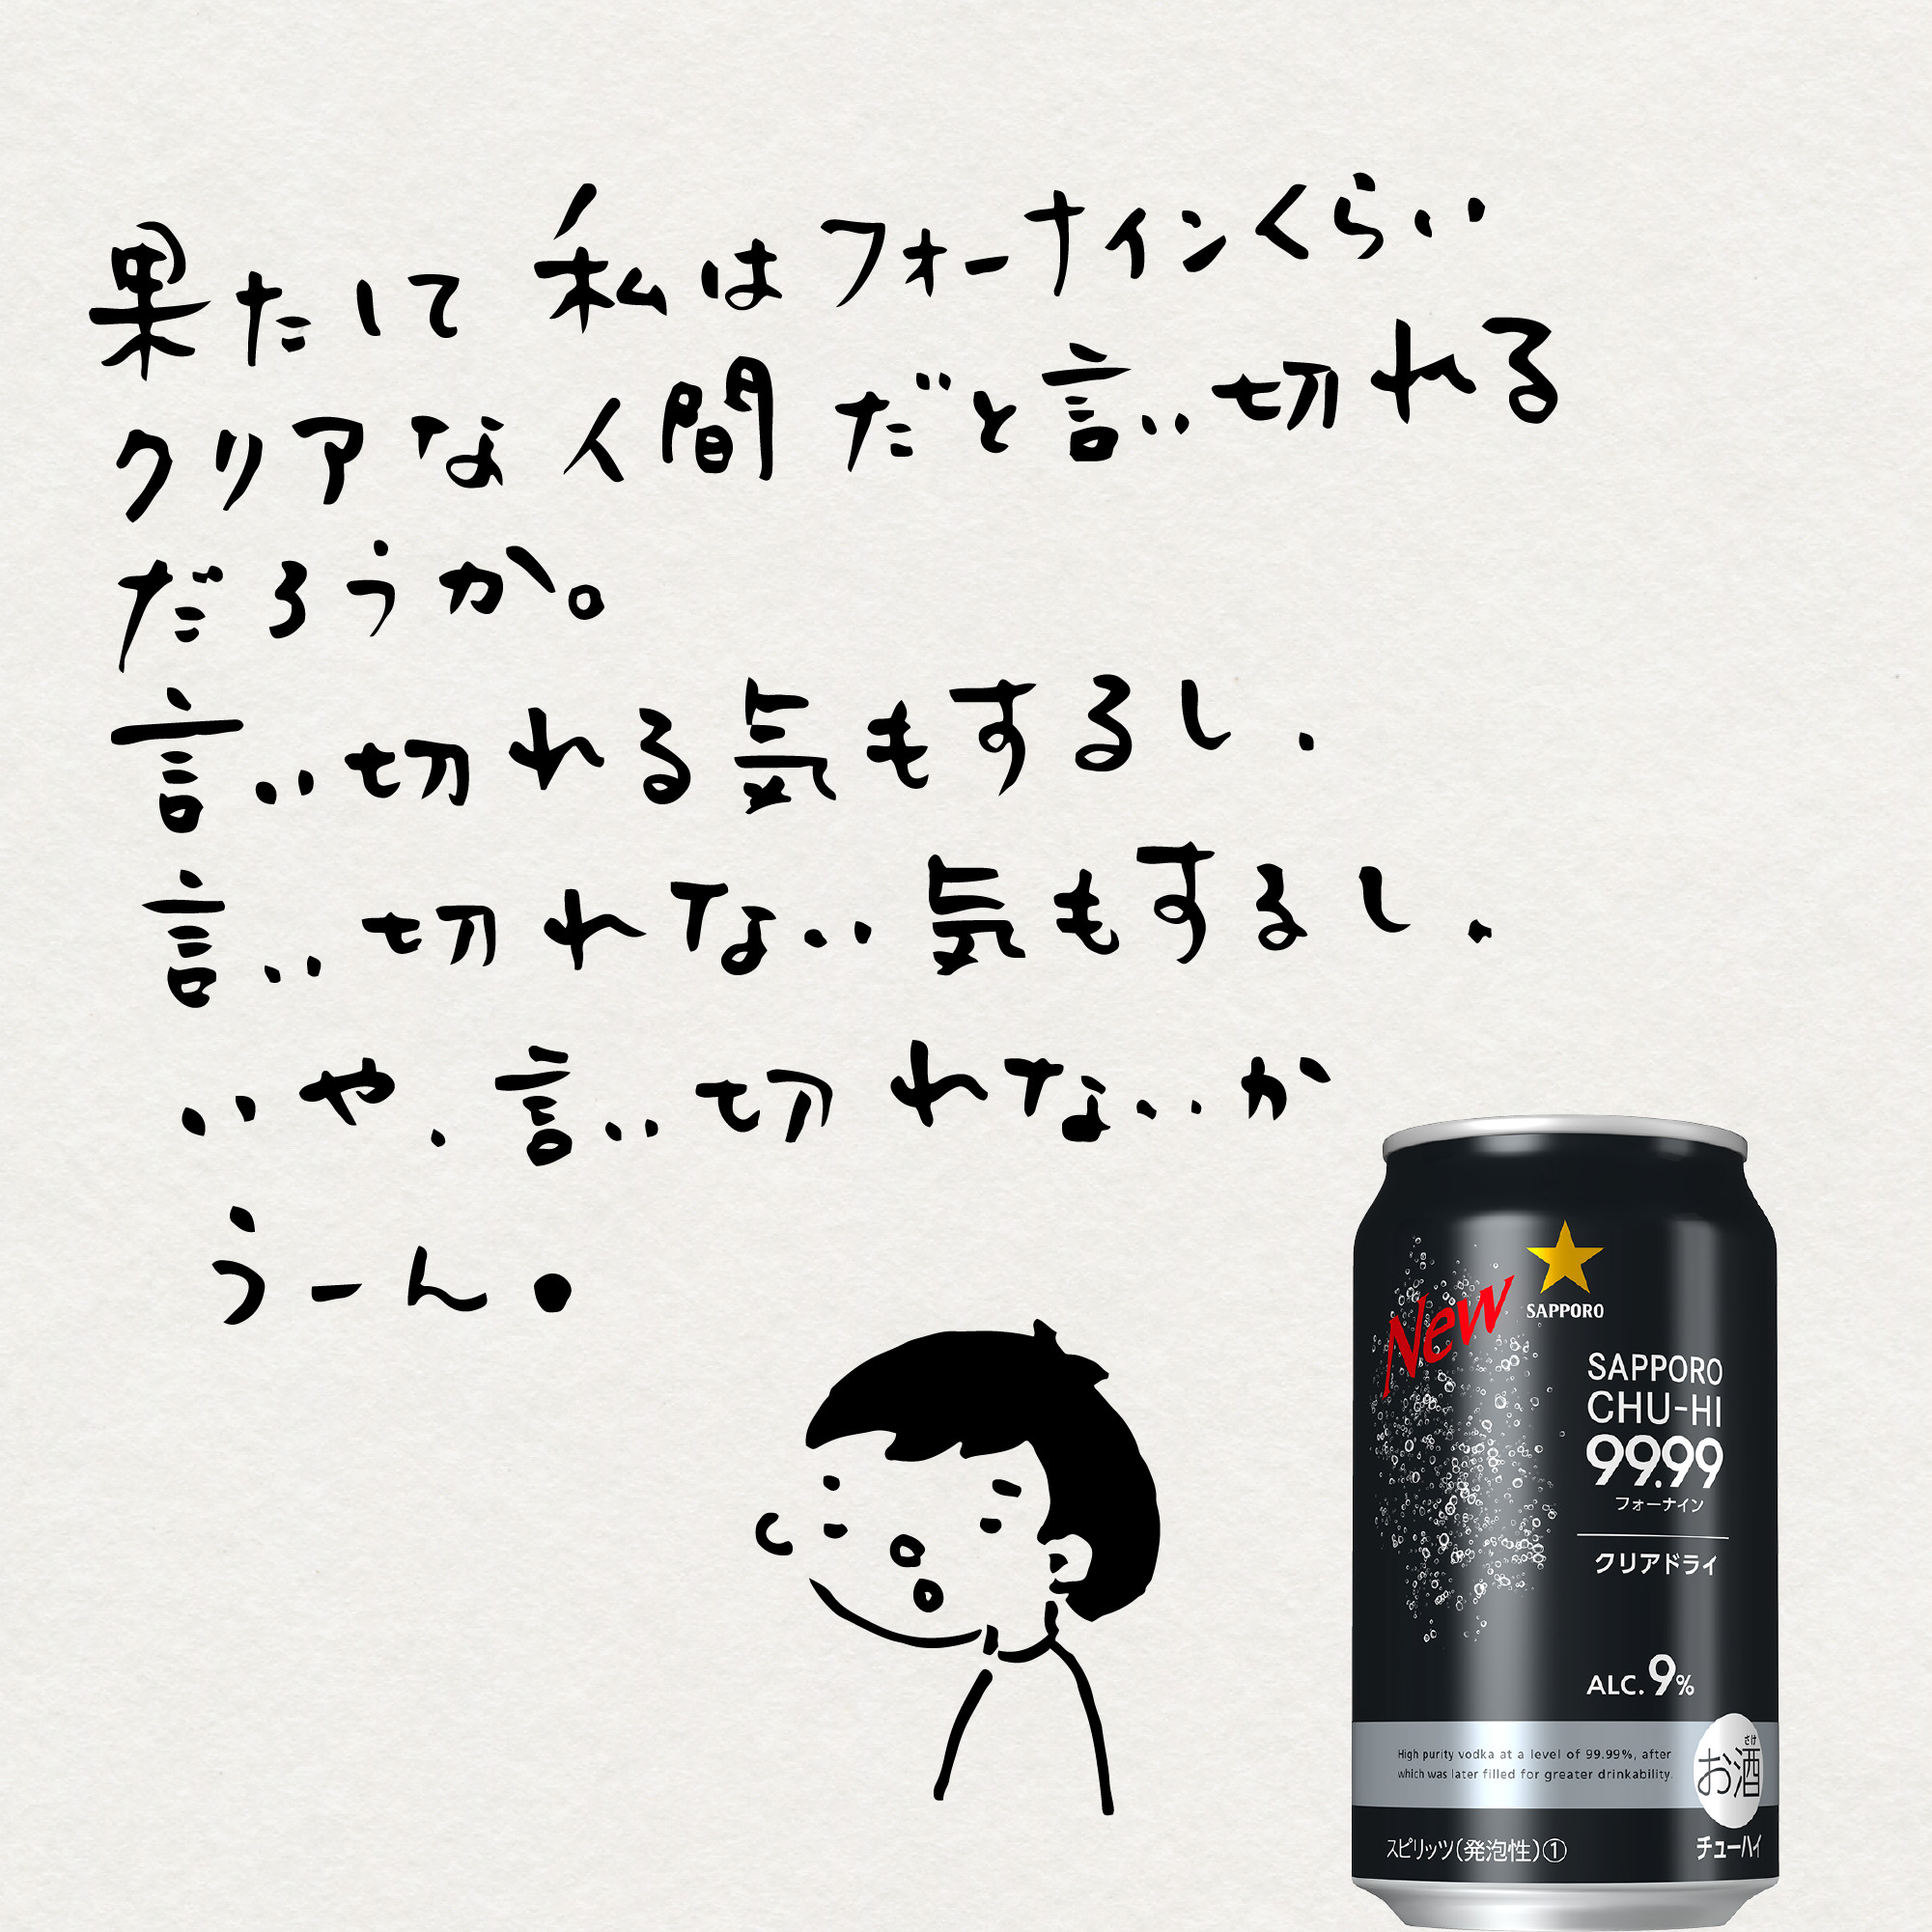 果たして私はフォーナインくらい
クリアな人間だと言い切れる
だろうか。
言い切れる気もするし、
言い切れない気もするし、
いや、言い切れないか
うーん。
New
SAPPORO
SAPPORO
CHU-HI
99.99
フォーナイン
クリアドライ
ALC.9%
High purity vodka at a level of 99.99%, after
which was later filled for greater drinkability.
さけ
お酒
スピリッツ(発泡性)①
チューハイ